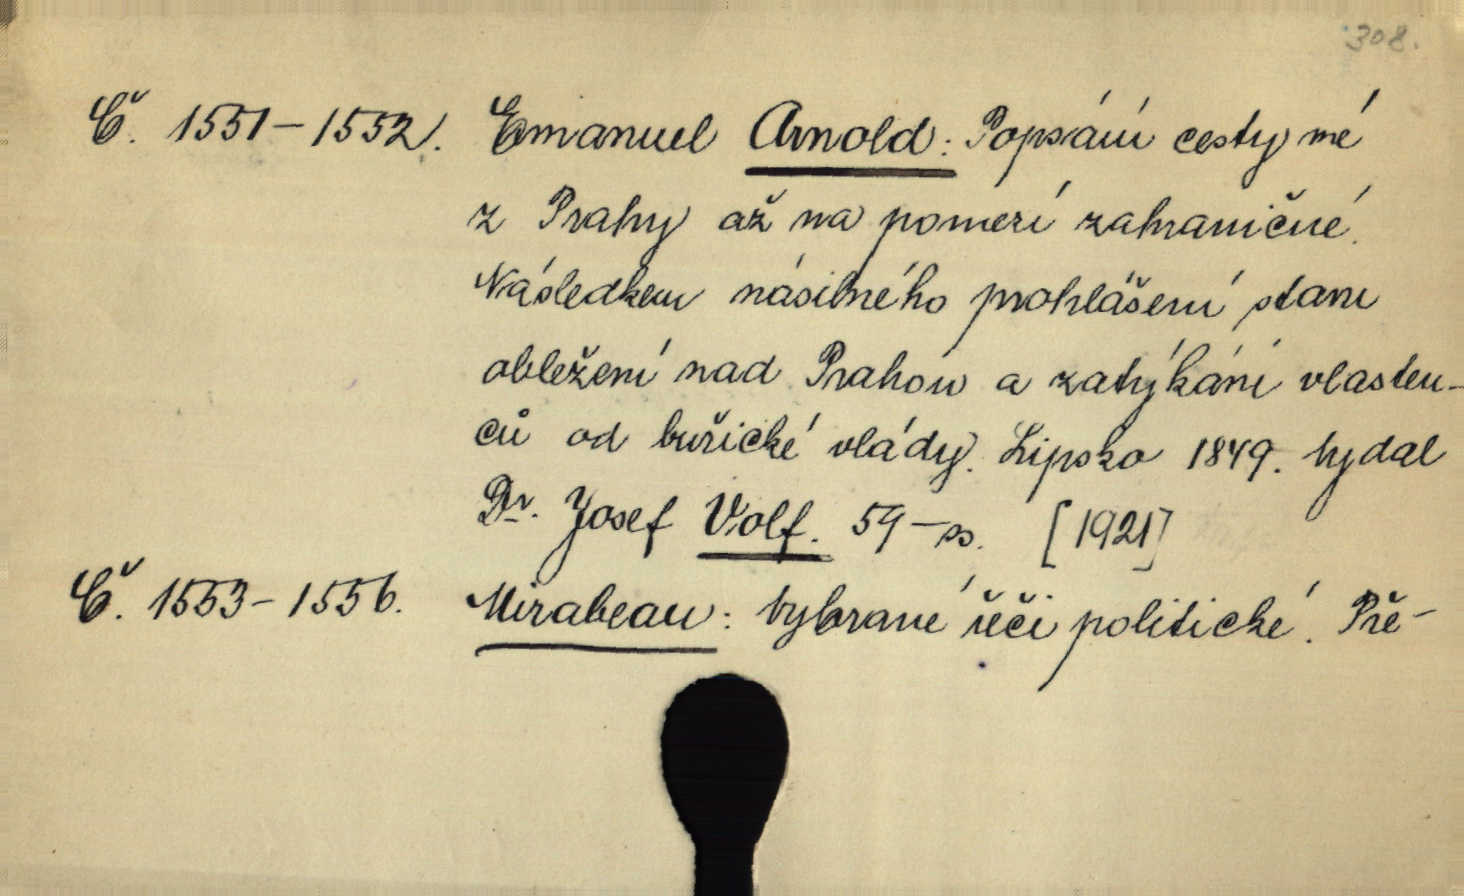 308.
Č. 1551-1552. Emanuel Arnold: Popsání cesty mé
z Prahy až na pomezí zahraničné.
Následkem násilného prohlášení stavu
obležení nad Prahou a zatýkání vlasten-
ců od buřické vlády. Lipsko 1849. Vydal
Dr. Josef Volf. 59-ss. [1921]
Č. 1553-1556. Mirabeau: Vybrané řeči politické. Pře-